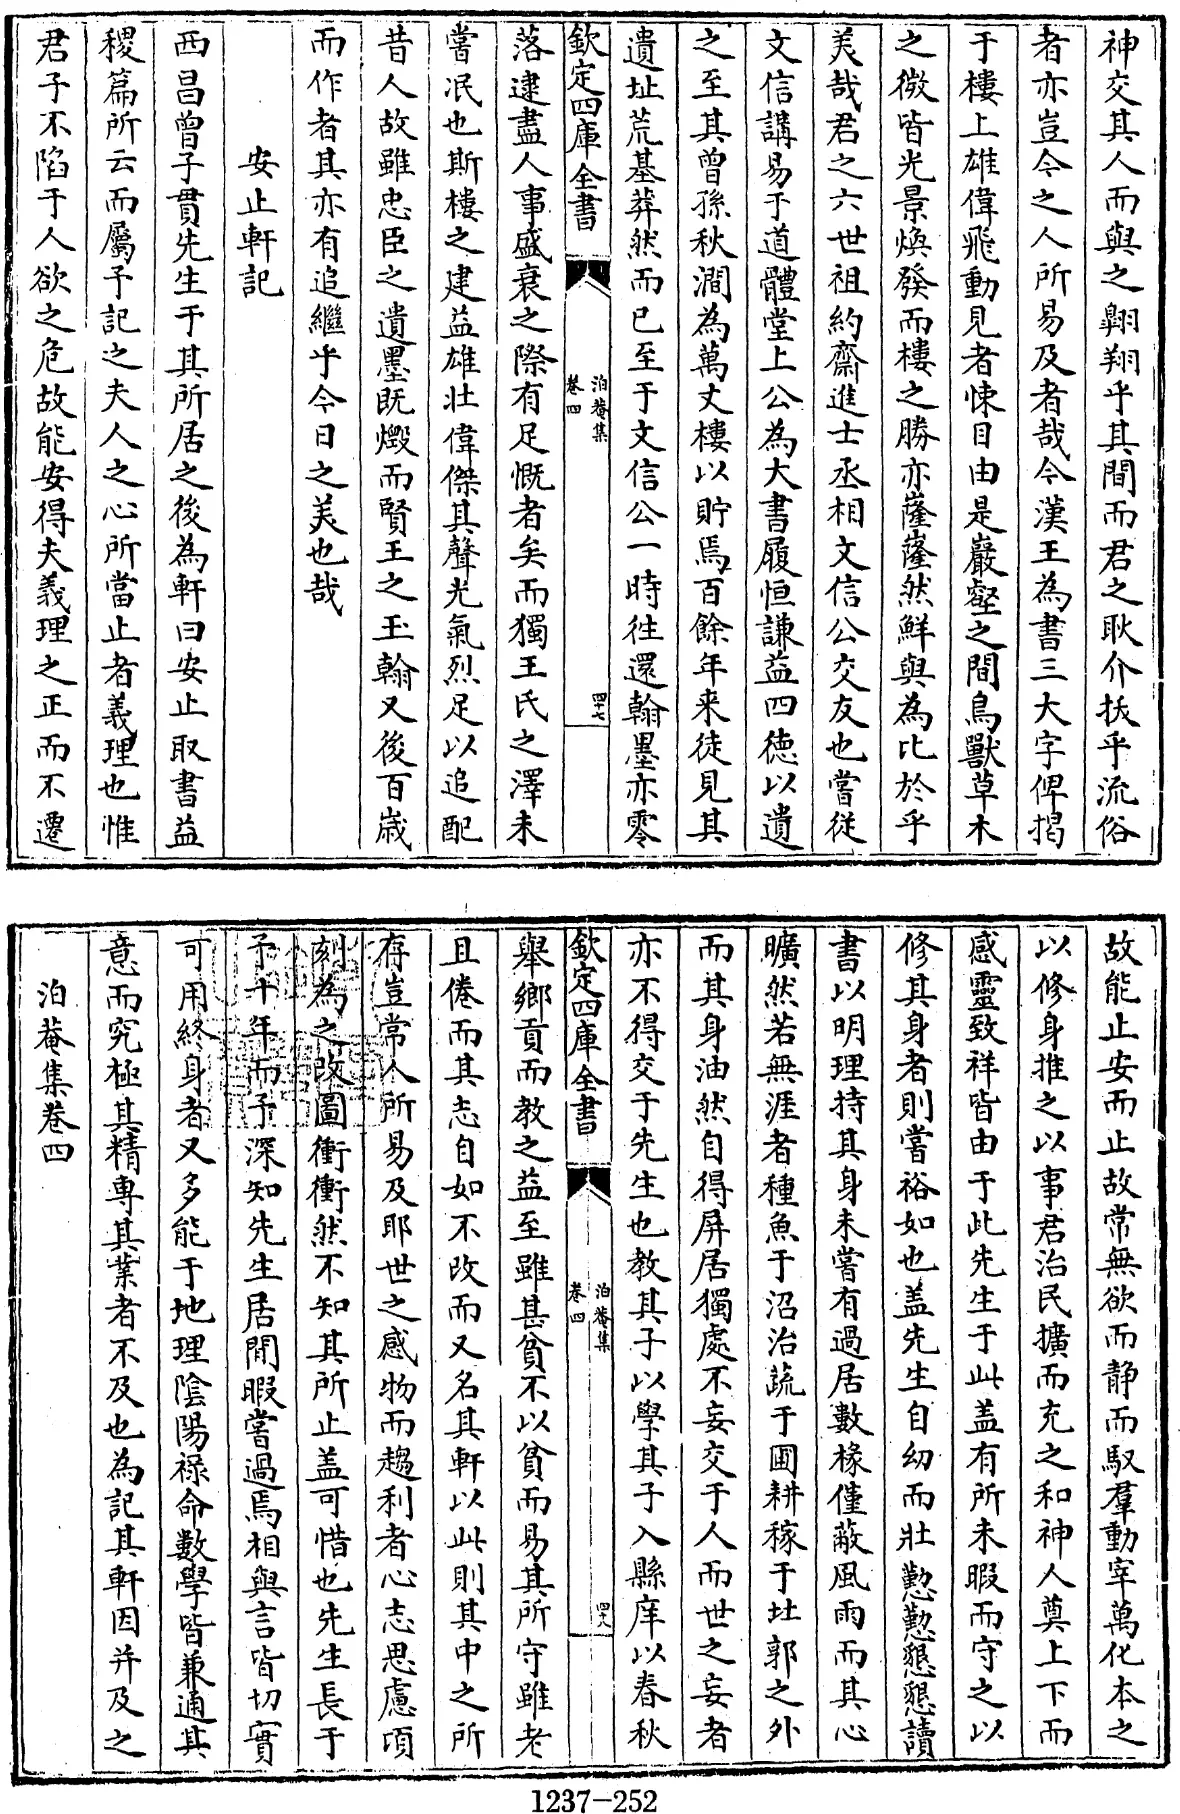 神交其人而與之翺翔乎其間而君之耿介拔乎流俗
者亦豈今之人所易及者哉今漢王為書三大字俾揭
于樓上雄偉飛動見者悚目由是巖壑之間鳥獸草木
之微皆光景煥發而樓之勝亦蓙蓙然鮮與為比於乎
美哉君之六世祖約齋進士丞相文信公交友也嘗從
文信講易于道體堂上公為大書履恒謙益四徳以遺
之至其曾孫秋澗為萬丈樓以貯焉百餘年来徒見其
遺址荒基莽然而已至于文信公一時往還翰墨亦零
欽定四庫全書
泊菴集
卷四
四十七
落逮盡人事盛衰之際有足慨者矣而獨王氏之澤未
嘗泯也斯樓之建益雄壯偉傑其聲光氣烈足以追配
昔人故雖忠臣之遺墨既燬而賢王之玉翰又後百歳
而作者其亦有追繼乎今日之美也哉
安止軒記
西昌曾子貫先生于其所居之後為軒曰安止取書益
稷篇所云而屬予記之夫人之心所當止者義理也惟
君子不陷于人欲之危故能安得夫義理之正而不遷
故能止安而止故常無欲而静而馭羣動宰萬化本之
以修身推之以事君治民擴而充之和神人奠上下而
感靈致祥皆由于此先生于此盖有所未暇而守之以
修其身者則嘗裕如也盖先生自幼而壯懃懃懇懇讀
書以明理持其身未嘗有過居數椽僅蔽風雨而其心
曠然若無涯者種魚于沼治蔬于圃耕稼于邶郭之外
而其身油然自得屏居獨處不妄交于人而世之妄者
亦不得交于先生也教其子以學其子入縣庠以春秋
欽定四庫全書
泊菴集
卷四
四十八
舉鄉貢而教之益至雖甚貧不以貧而易其所守雖老
且倦而其志自如不改而又名其軒以此則其中之所
存豈常人所易及耶世之感物而趨利者心志思慮頃
刻為之改圖衝衝然不知其所止盖可惜也先生長于
予十年而予深知先生居閒暇嘗過焉相與言皆切實
可用終身者又多能于地理陰陽禄命數學皆兼通其
意而究極其精専其業者不及也為記其軒因并及之
泊菴集卷四
1237-252